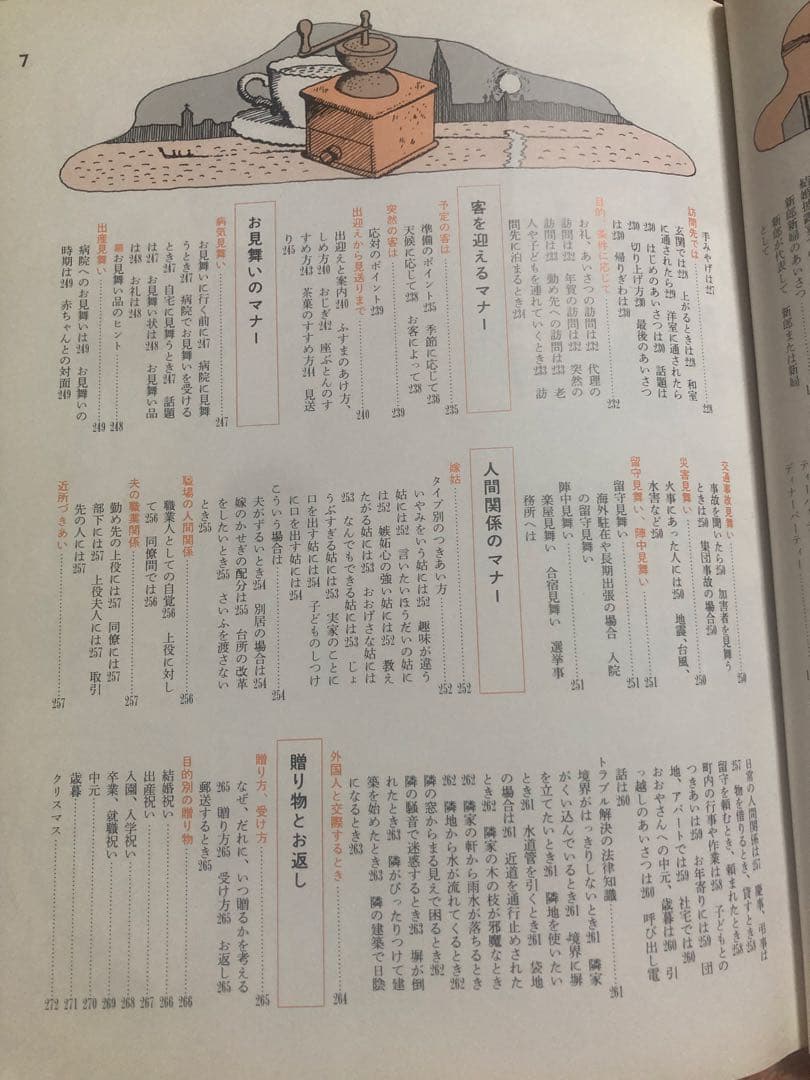 7
手みやげは227
訪問先では…………228
玄関では228　上がるときは228　和室
に通されたら229　洋室に通されたら
230　はじめのあいさつは230　話題は
230　切り上げ方230　最後のあいさつ
は230　帰りぎわは230
目的、条件に応じて…………232
お礼、あいさつの訪問は232　代理の
訪問は232　年賀の訪問は232　突然の
訪問は232　勤め先への訪問は233　老
人や子どもを連れていくとき233　訪
問先に泊まるとき234
客を迎えるマナー
予定の客は…………235
準備のポイント235　季節に応じて236
天候に応じて238　お客によって238
突然の客は…………239
応対のポイント239
出迎えから見送りまで…………240
出迎えと案内240　ふすまのあけ方、
しめ方240　おじぎ242　座ぶとんのす
すめ方243　茶菓のすすめ方244　見送
り245
お見舞いのマナー
病気見舞い…………247
お見舞いに行く前に247　病院に見舞
うとき247　病院でお見舞いを受ける
とき247　自宅に見舞うとき247　話題
は247　お見舞い状は248　お見舞い品
は248　お礼は248
お見舞い品のヒント…………248
出産見舞い…………249
病院へのお見舞いは249　お見舞いの
時期は249　赤ちゃんとの対面249
交通事故見舞い…………250
事故を聞いたら250　加害者を見舞う
ときは250　集団事故の場合250
災害見舞い…………250
火事にあった人には250　地震、台風、
水害など250
留守見舞い、陣中見舞い…………251
留守見舞い…………251
海外駐在や長期出張の場合　入院
の留守見舞い
陣中見舞い…………251
楽屋見舞い　合宿見舞い　選挙事
務所へは
人間関係のマナー
嫁姑…………252
タイプ別のつきあい方…………252
いやみをいう姑には252　趣味が違う
姑には252　言いたいほうだいの姑に
は252　嫉妬心の強い姑には252　教え
たがる姑には253　おおげさな姑には
253　なんでもできる姑には253　じょ
うぶすぎる姑には253　実家のことに
口を出す姑には254　子どものしつけ
に口を出す姑には254
こういう場合は…………254
夫がずるいとき254　別居の場合は254
嫁のかせぎの配分は255　台所の改革
をしたいとき255　さいふを渡さない
とき255
職場の人間関係…………256
職業人としての自覚256　上役に対し
て256　同僚間では256
夫の職業関係…………257
勤め先の上役には257　同僚には257
部下には257　上役夫人には257　取引
先の人には257
近所づきあい…………257
日常の人間関係は257　慶事、弔事は
257　物を借りるとき、貸すとき258
留守を頼むとき、頼まれたとき258
町内の行事や作業は258　子どもとの
つきあいは259　お年寄りには259　団
地、アパートでは259　社宅では260
おおやさんへの中元、歳暮は260　引
っ越しのあいさつは260　呼び出し電
話は260
トラブル解決の法律知識…………261
境界がはっきりしないとき261　隣家
がくい込んでいるとき261　境界に塀
を立てたいとき261　隣地を使いたい
とき261　水道管を引くとき261　袋地
の場合は261　近道を通行止めされた
とき262　隣家の木の枝が邪魔なとき
262　隣家の軒から雨水が落ちるとき
262　隣地から水が流れてくるとき262
隣の窓からまる見えで困るとき262
隣の騒音で迷惑するとき263　塀が倒
れたとき263　隣がぴったりつけて建
築を始めたとき263　隣の建築で日陰
になるとき263
外国人と交際するとき…………264
贈り物とお返し
贈り方、受け方…………265
なぜ、だれに、いつ贈るかを考える
265　贈り方265　受け方265　お返し265
郵送するとき265
目的別の贈り物…………266
結婚祝い…………266
出産祝い…………267
入園、入学祝い…………268
卒業、就職祝い…………269
中元…………270
歳暮…………271
クリスマス…………272
新郎新婦のあいさつ
新郎が代表して　新郎または新婦
として
ディナーパーティー